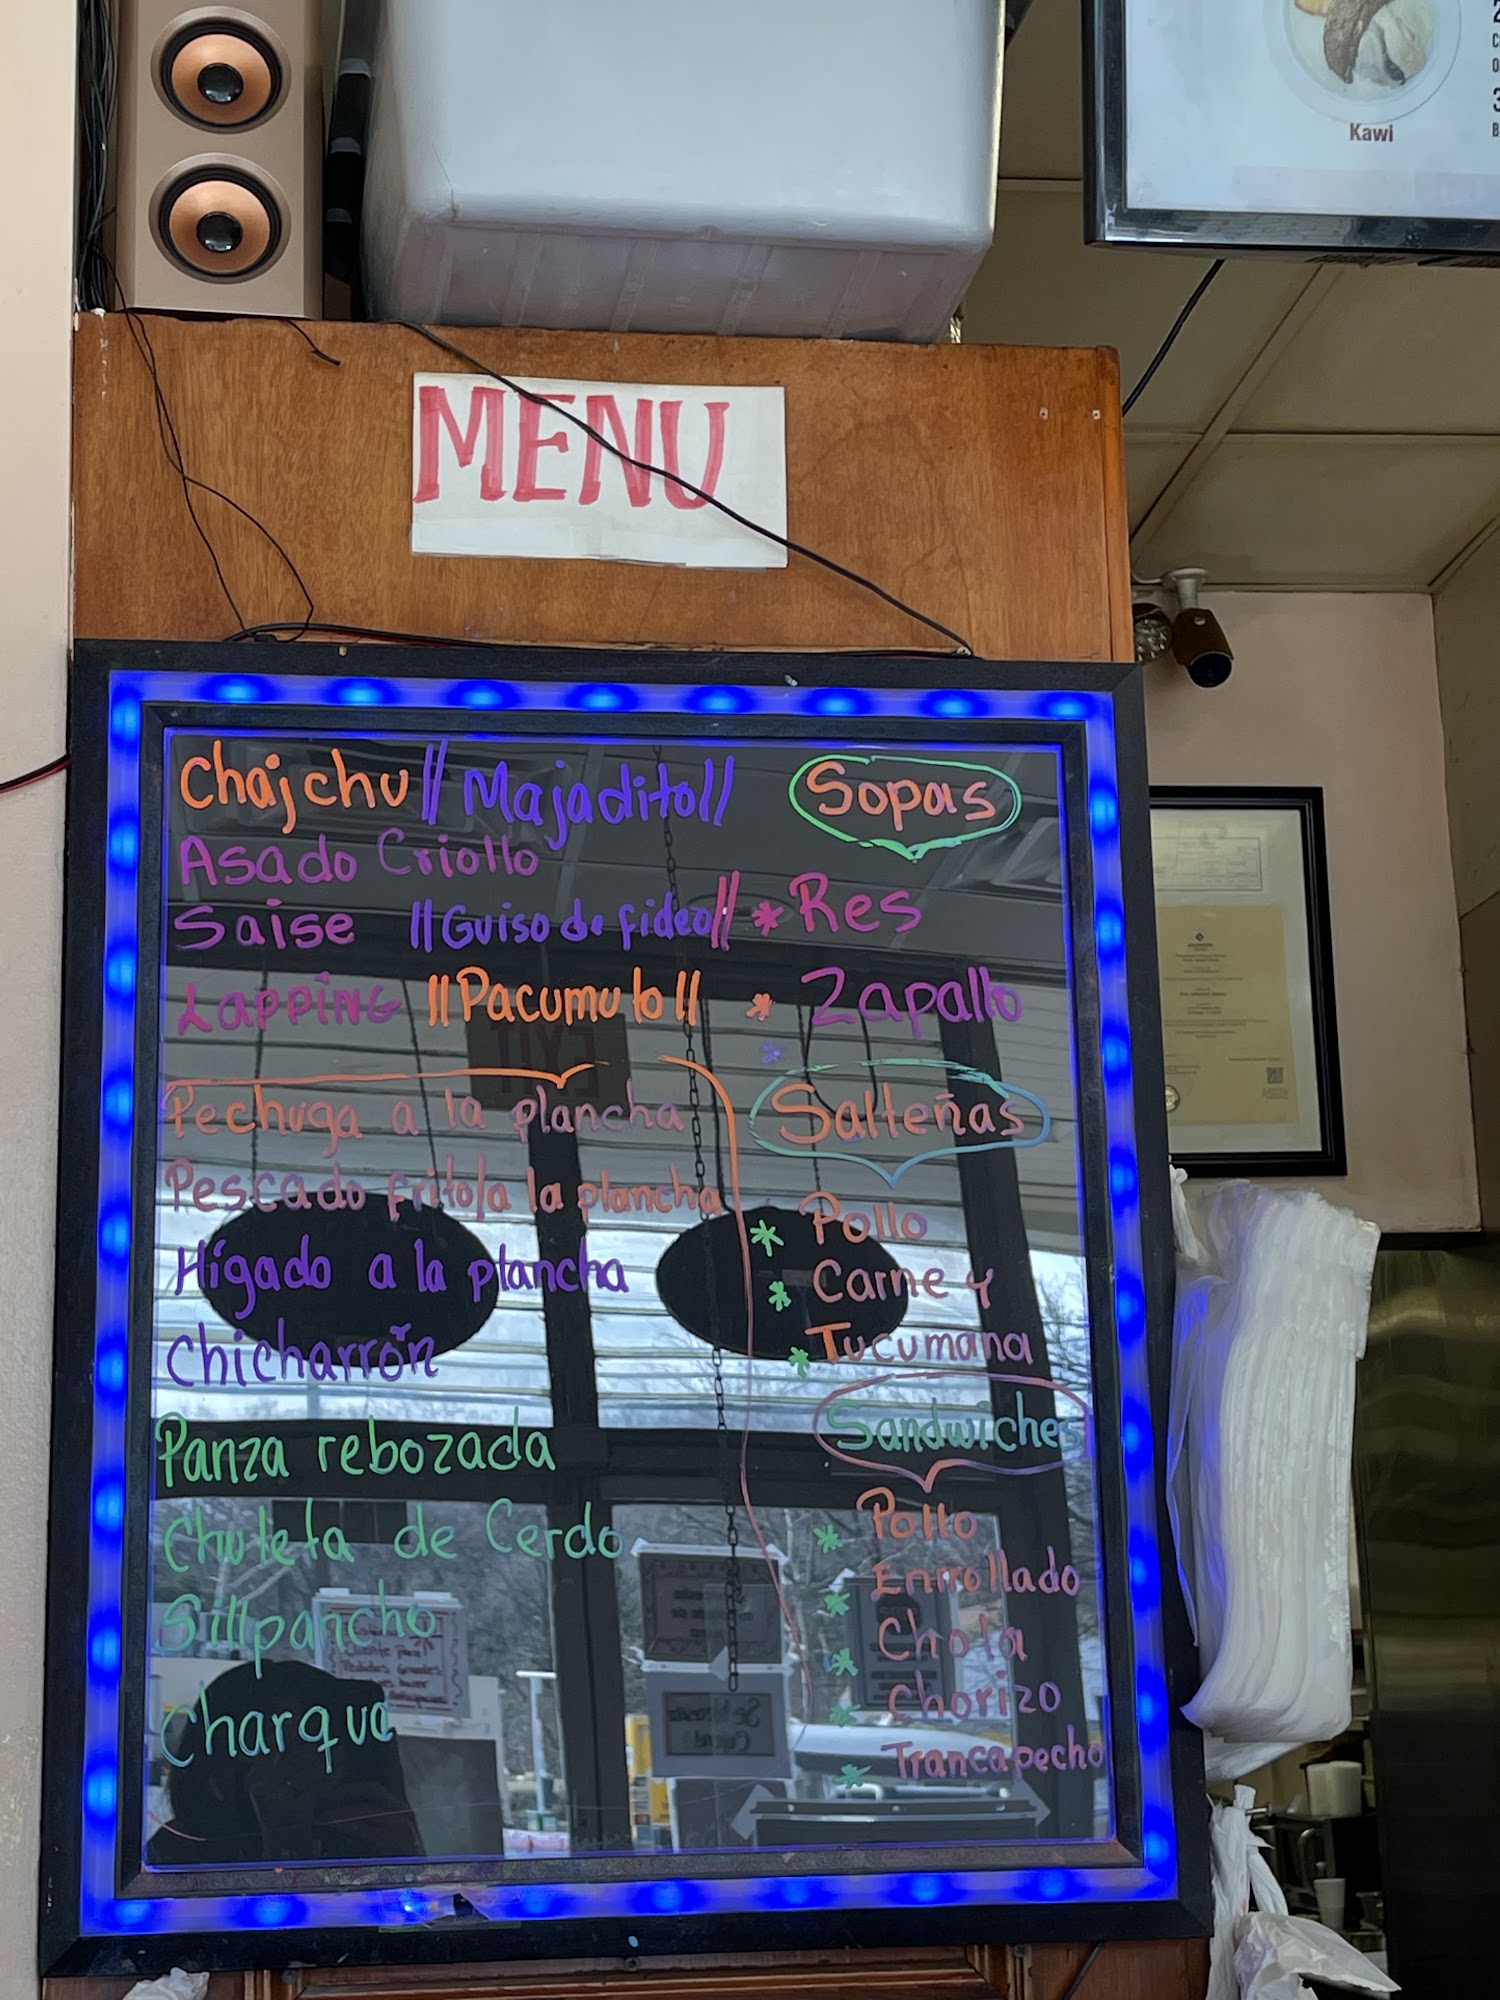 Kawi
MENU
Chajchu || Majadito ||
Asado Criollo
Saise || Guiso de fideo ||
Lapping || Pacumuto ||
Pechuga a la plancha
Pescado frito/a la plancha
Hígado a la plancha
Chicharrón
Panza rebozada
Chuleta de Cerdo
Sillpancho
Charque
Sopas
* Res
* Zapallo
*
Salteñas
* Pollo
* Carne y
* Tucumana
Sandwiches
* Pollo
* Enrollado
* Chola
* Chorizo
* Trancapecho